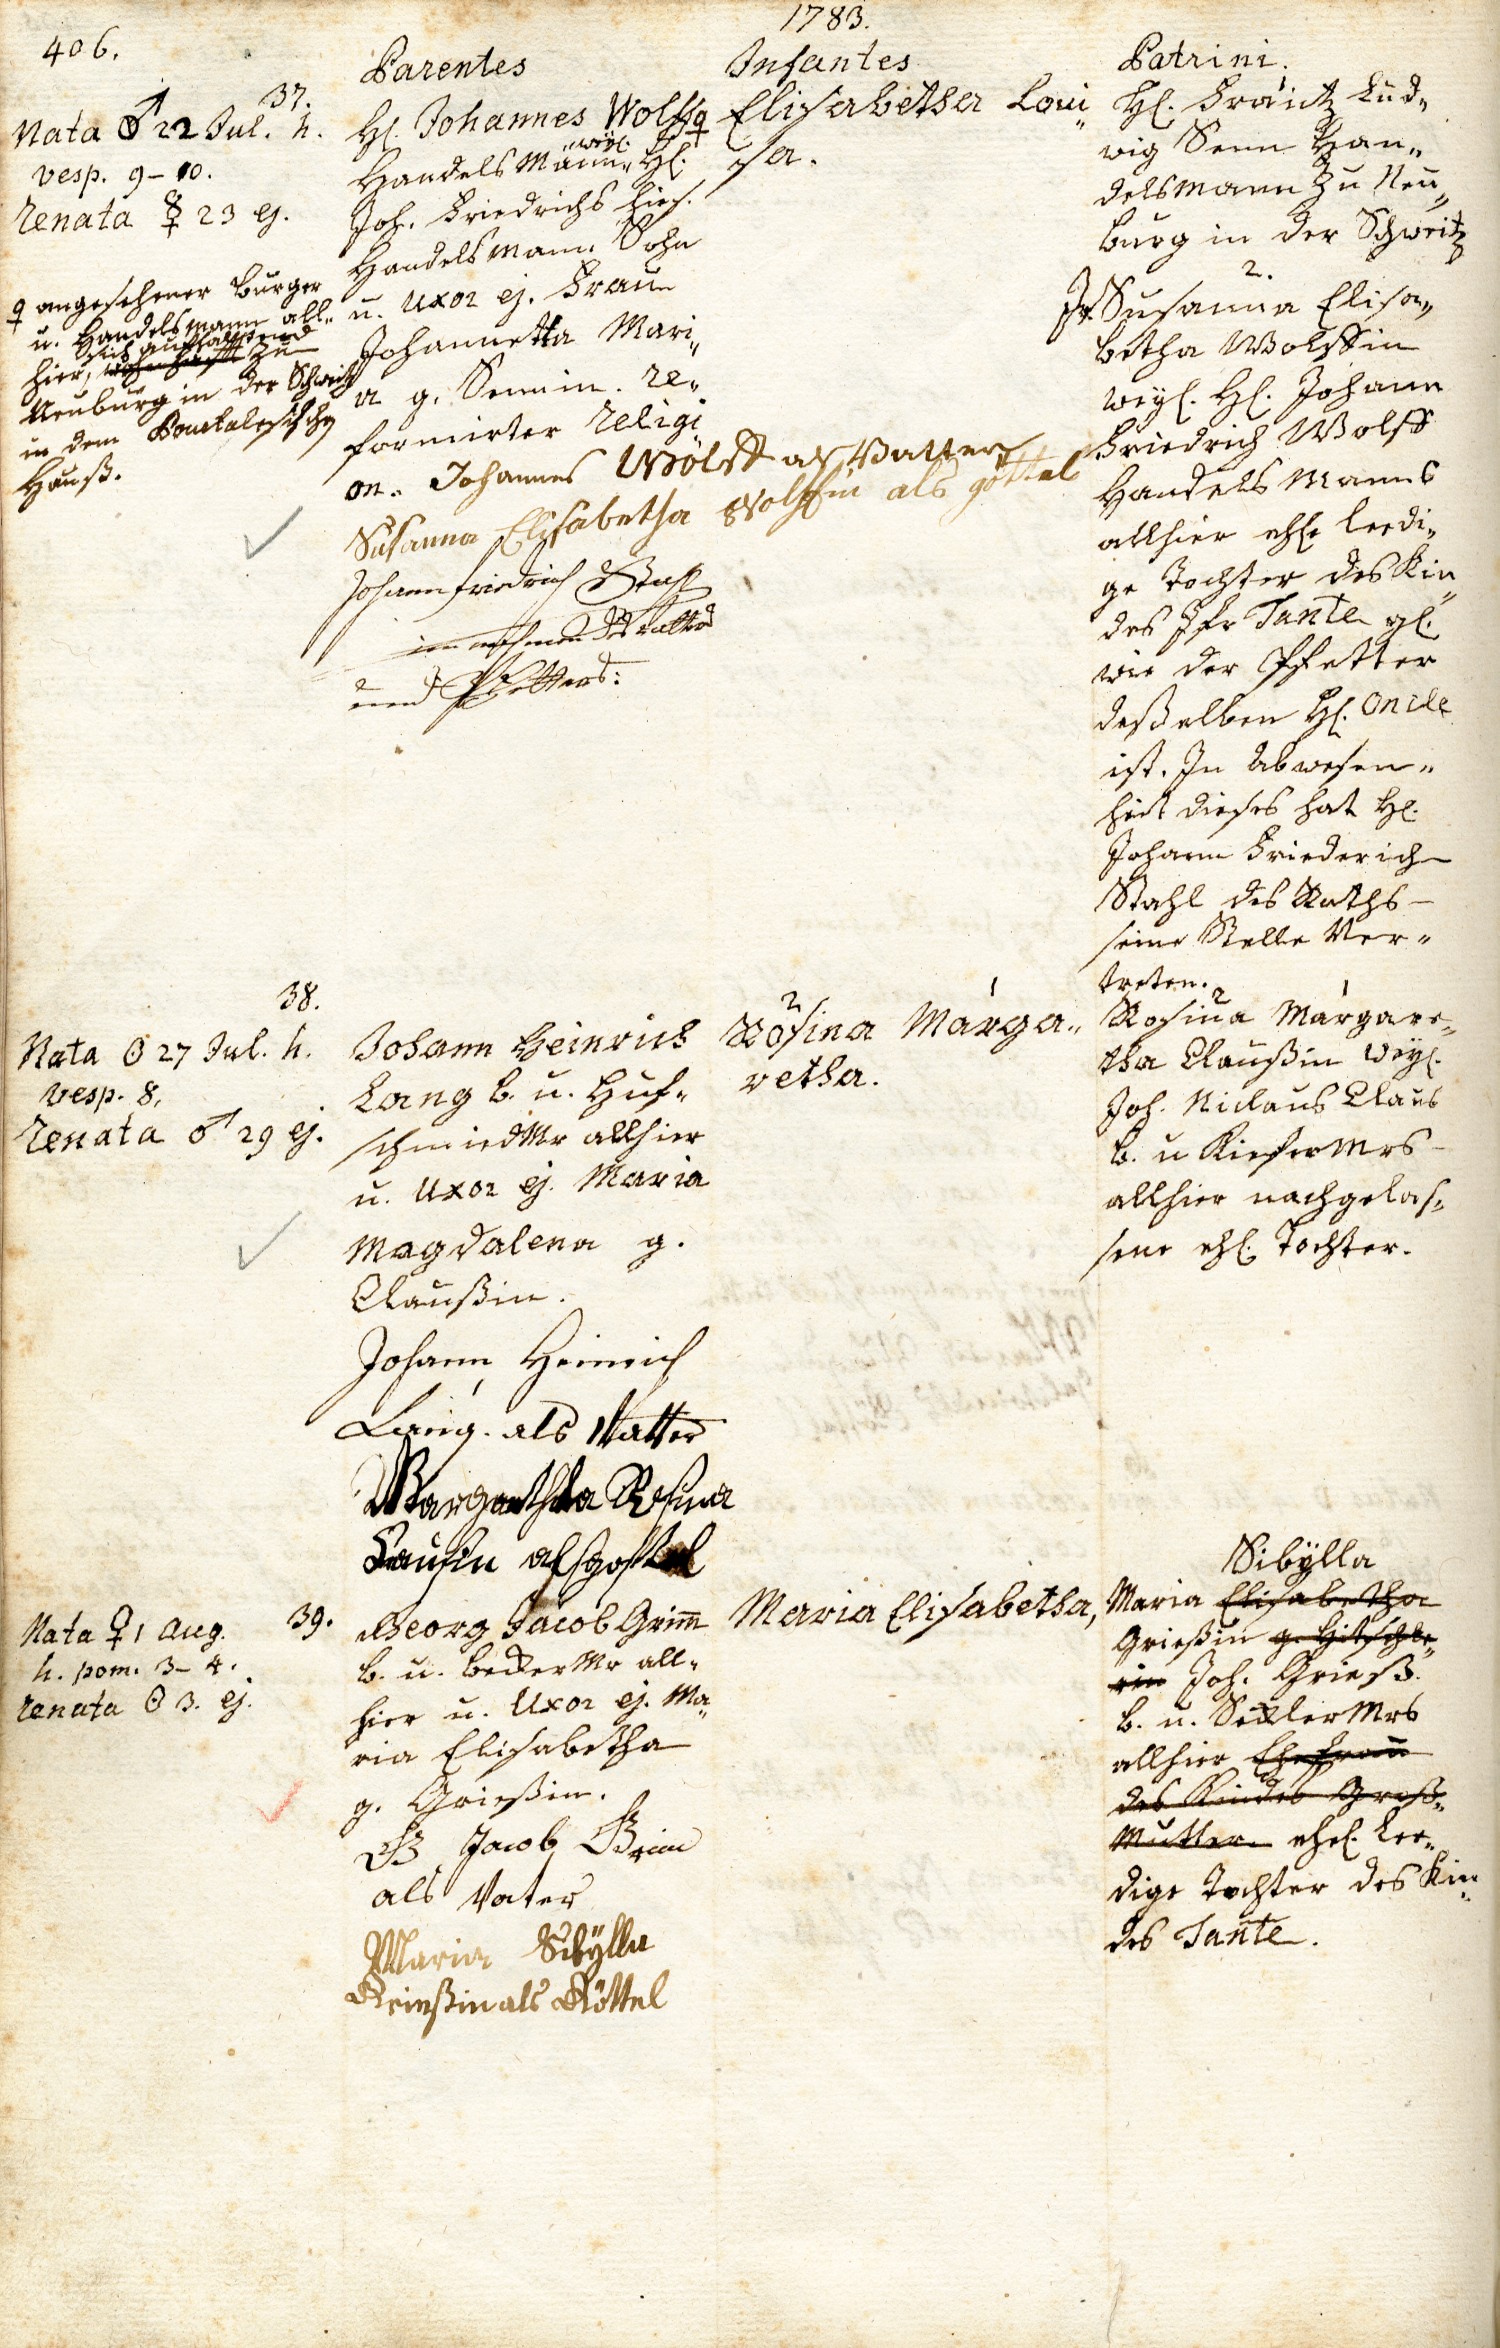 406.
1783.
Parentes
Infantes
Patrini.
37.
Nata ♂ 22 Jul. h.
vesp. 9–10.
Renata ☿ 23 ej.
♀ angesehener Burger
u. Handelsmann all-
hier, sich aufhaltend zu
Neuburg in der Schweitz
in dem Pourtalesischen
Hauß.
H. Johannes Wolff ♀
Handels Mann, weyl. H.
Joh. Friedrichs hies.
Handelsmann Sohn
u. Uxor ej. Frau
Johannetta Mari„
a g. Sennin. re„
formirter Religi
on.
Johannes Wolff als Vatter
Susanna Elisabetha Wolffin als göttel
Johann Friedrich Stahl
im nahmen des vatters
und Pfetters:
Elisabetha Loui„
sa.
H. Frantz Lud„
wig Senn Han„
delsmann zu Neu„
burg in der Schweitz
2.
Jfr. Susanna Elisa„
betha Wolffin
weyl. H. Johann
Friedrich Wolff
Handels Manns
allhier ehl. leedi„
ge Tochter des Kin„
des Jfr Tante gl.
wie der Pfetter
deßelben H. Oncle
ist. In Abwesen„
heit dieses hat H.
Johann Friederich
Stahl des Raths
seine Stelle Ver„
treten.
38.
Nata ☉ 27 Jul. h.
vesp. 8.
Renata ♂ 29 ej.
Johann Heinrich
Lang b. u. Huf„
schmiedMr allhier
u. Uxor ej. Maria
Magdalena g.
Claußin.
Johann Heinrich
Lang. als Vatter
Margaretha Rosina
Clausin als gottel
2 1
Rosina Marga„
retha.
2 1
Rosina Margare„
tha Claußin weyl.
Joh. Niclaus Claus
b. u KieferMrs
allhier nachgelas„
sene ehl. Tochter.
39.
Nata ♀ 1 Aug.
h. pom. 3–4.
Renata ☉ 3. ej.
Georg Jacob Grim̄
b. u. beckerMr all„
hier u. Uxor ej. Ma„
ria Elisabetha
g. Grießin.
G Jacob Grim
als Vater
Maria Sibÿlla
Grießin als Göttel
Maria Elisabetha,
Sibÿlla
Maria Elisabetha
Grießin g. Hitschle„
rin Joh. Grieß
b. u. SeilerMrs
allhier Ehefrau
des Kindes Groß„
Mutter ehel. Lee„
dige Tochter des Kin„
des Tante.